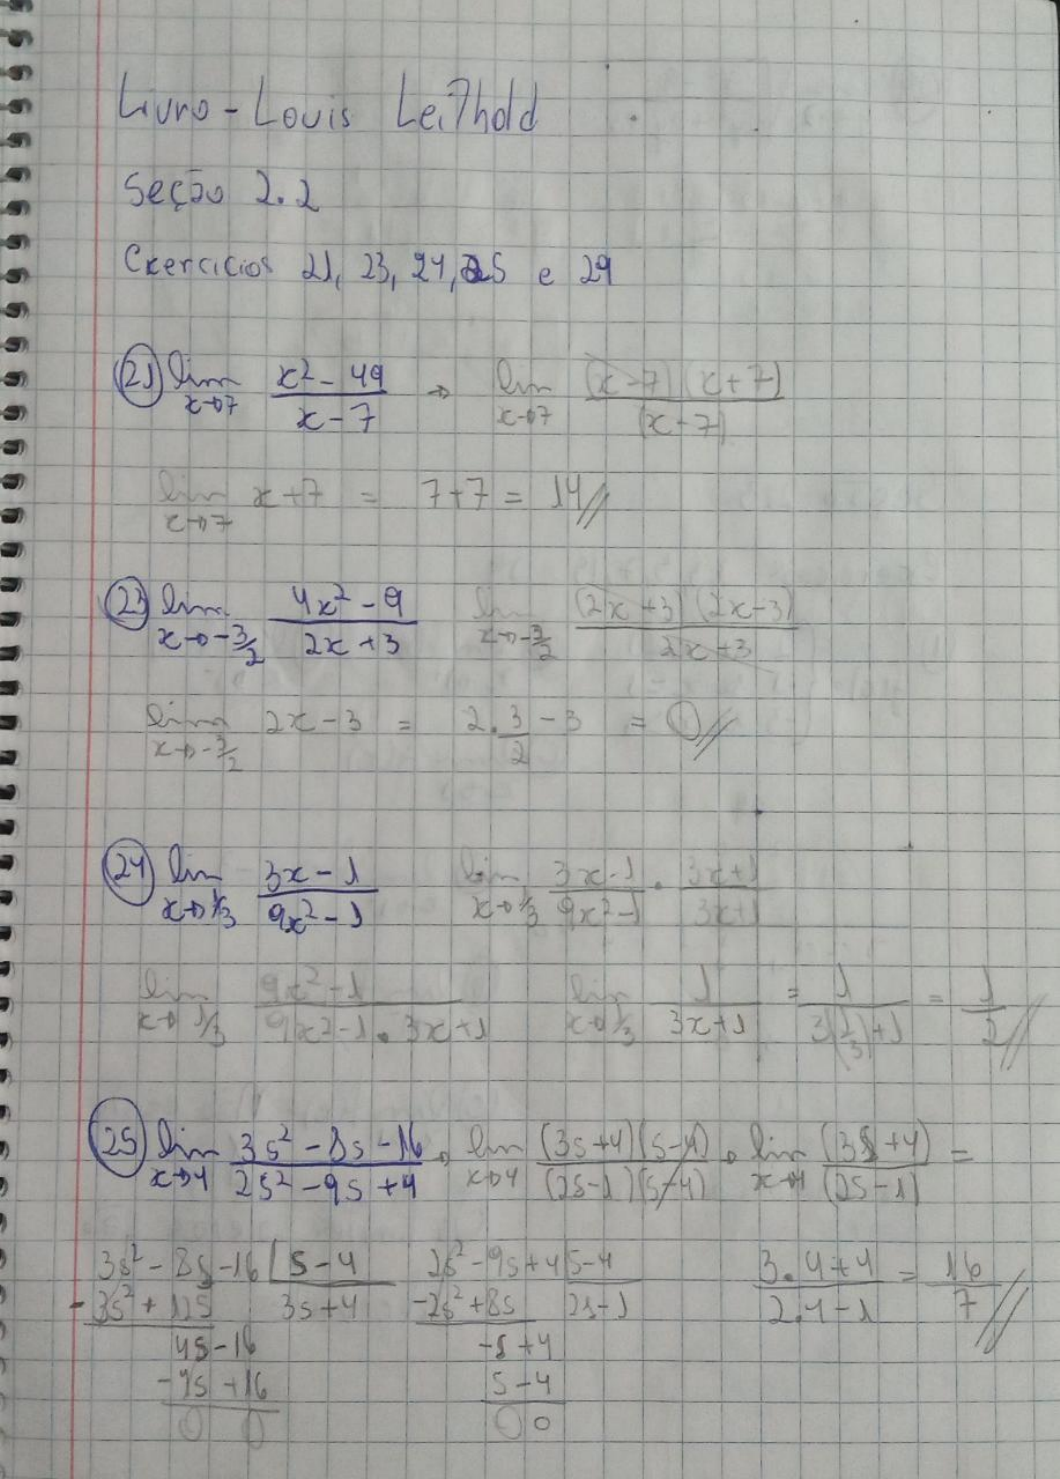 Livro - Louis Leithold
Seção 2.2
Exercícios 21, 23, 24, 25 e 29
21) lim x→7 (x² - 49)/(x - 7) → lim x→7 (x-7)(x+7)/(x-7)
lim x→7 x+7 = 7+7 = 14//
23) lim x→-3/2 (4x² - 9)/(2x + 3) lim x→-3/2 (2x+3)(2x-3)/(2x+3)
lim x→-3/2 2x - 3 = 2.3/2 - 3 = 0//
24) lim x→1/3 (3x - 1)/(9x² - 1) lim x→1/3 (3x-1)/(9x²-1) . (3x+1)/(3x+1)
lim x→1/3 (9x²-1)/(9x²-1 . 3x+1) lim x→1/3 1/(3x+1) = 1/(3(1/3)+1) = 1/2//
25) lim x→4 (3s² - 8s - 16)/(2s² - 9s + 4) → lim x→4 (3s+4)(s-4)/(2s-1)(s-4) → lim x→4 (3s+4)/(2s-1) =
3s² - 8s - 16 | s - 4 2s² - 9s + 4 | s-4 (3.4+4)/(2.4-1) = 16/7//
-3s² + 12s 3s+4 -2s² + 8s 2s-1
4s - 16 -s + 4
-4s + 16 s - 4
0 0 0 0